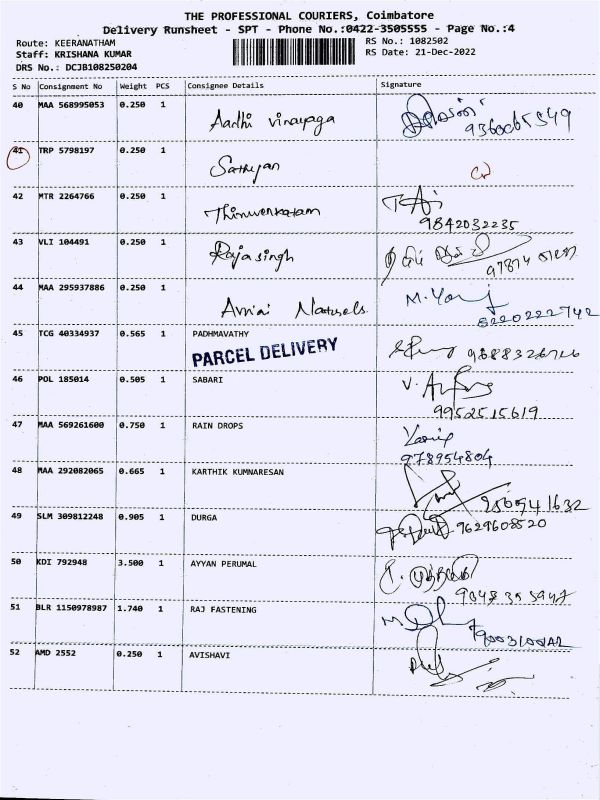 THE PROFESSIONAL COURIERS, Coimbatore
Delivery Runsheet - SPT - Phone No.:0422-3505555 - Page No.:4
Route: KEERANATHAM
RS No.: 1082502
Staff: KRISHANA KUMAR
RS Date: 21-Dec-2022
DRS No.: DCJB108250204
S No Consignment No Weight PCS Consignee Details Signature
40 MAA 568995053 0.250 1 Aadhi vinayaga
41 TRP 5798197 0.250 1 Sathiyan
42 MTR 2264766 0.250 1 Thiruvenkatam
9842032235
43 VLI 104491 0.250 1 Rajasingh
44 MAA 295937886 0.250 1 Naturals
8220222742
45 TCG 40334937 0.565 1 PADHMAVATHY
PARCEL DELIVERY
46 POL 185014 0.505 1 SABARI
9952515619
47 MAA 569261600 0.750 1 RAIN DROPS
978954804
48 MAA 292082065 0.665 1 KARTHIK KUMNARESAN
49 SLM 309812248 0.905 1 DURGA
9629608520
50 KDI 792948 3.500 1 AYYAN PERUMAL
51 BLR 1150978987 1.740 1 RAJ FASTENING
52 AMD 2552 0.250 1 AVISHAVI